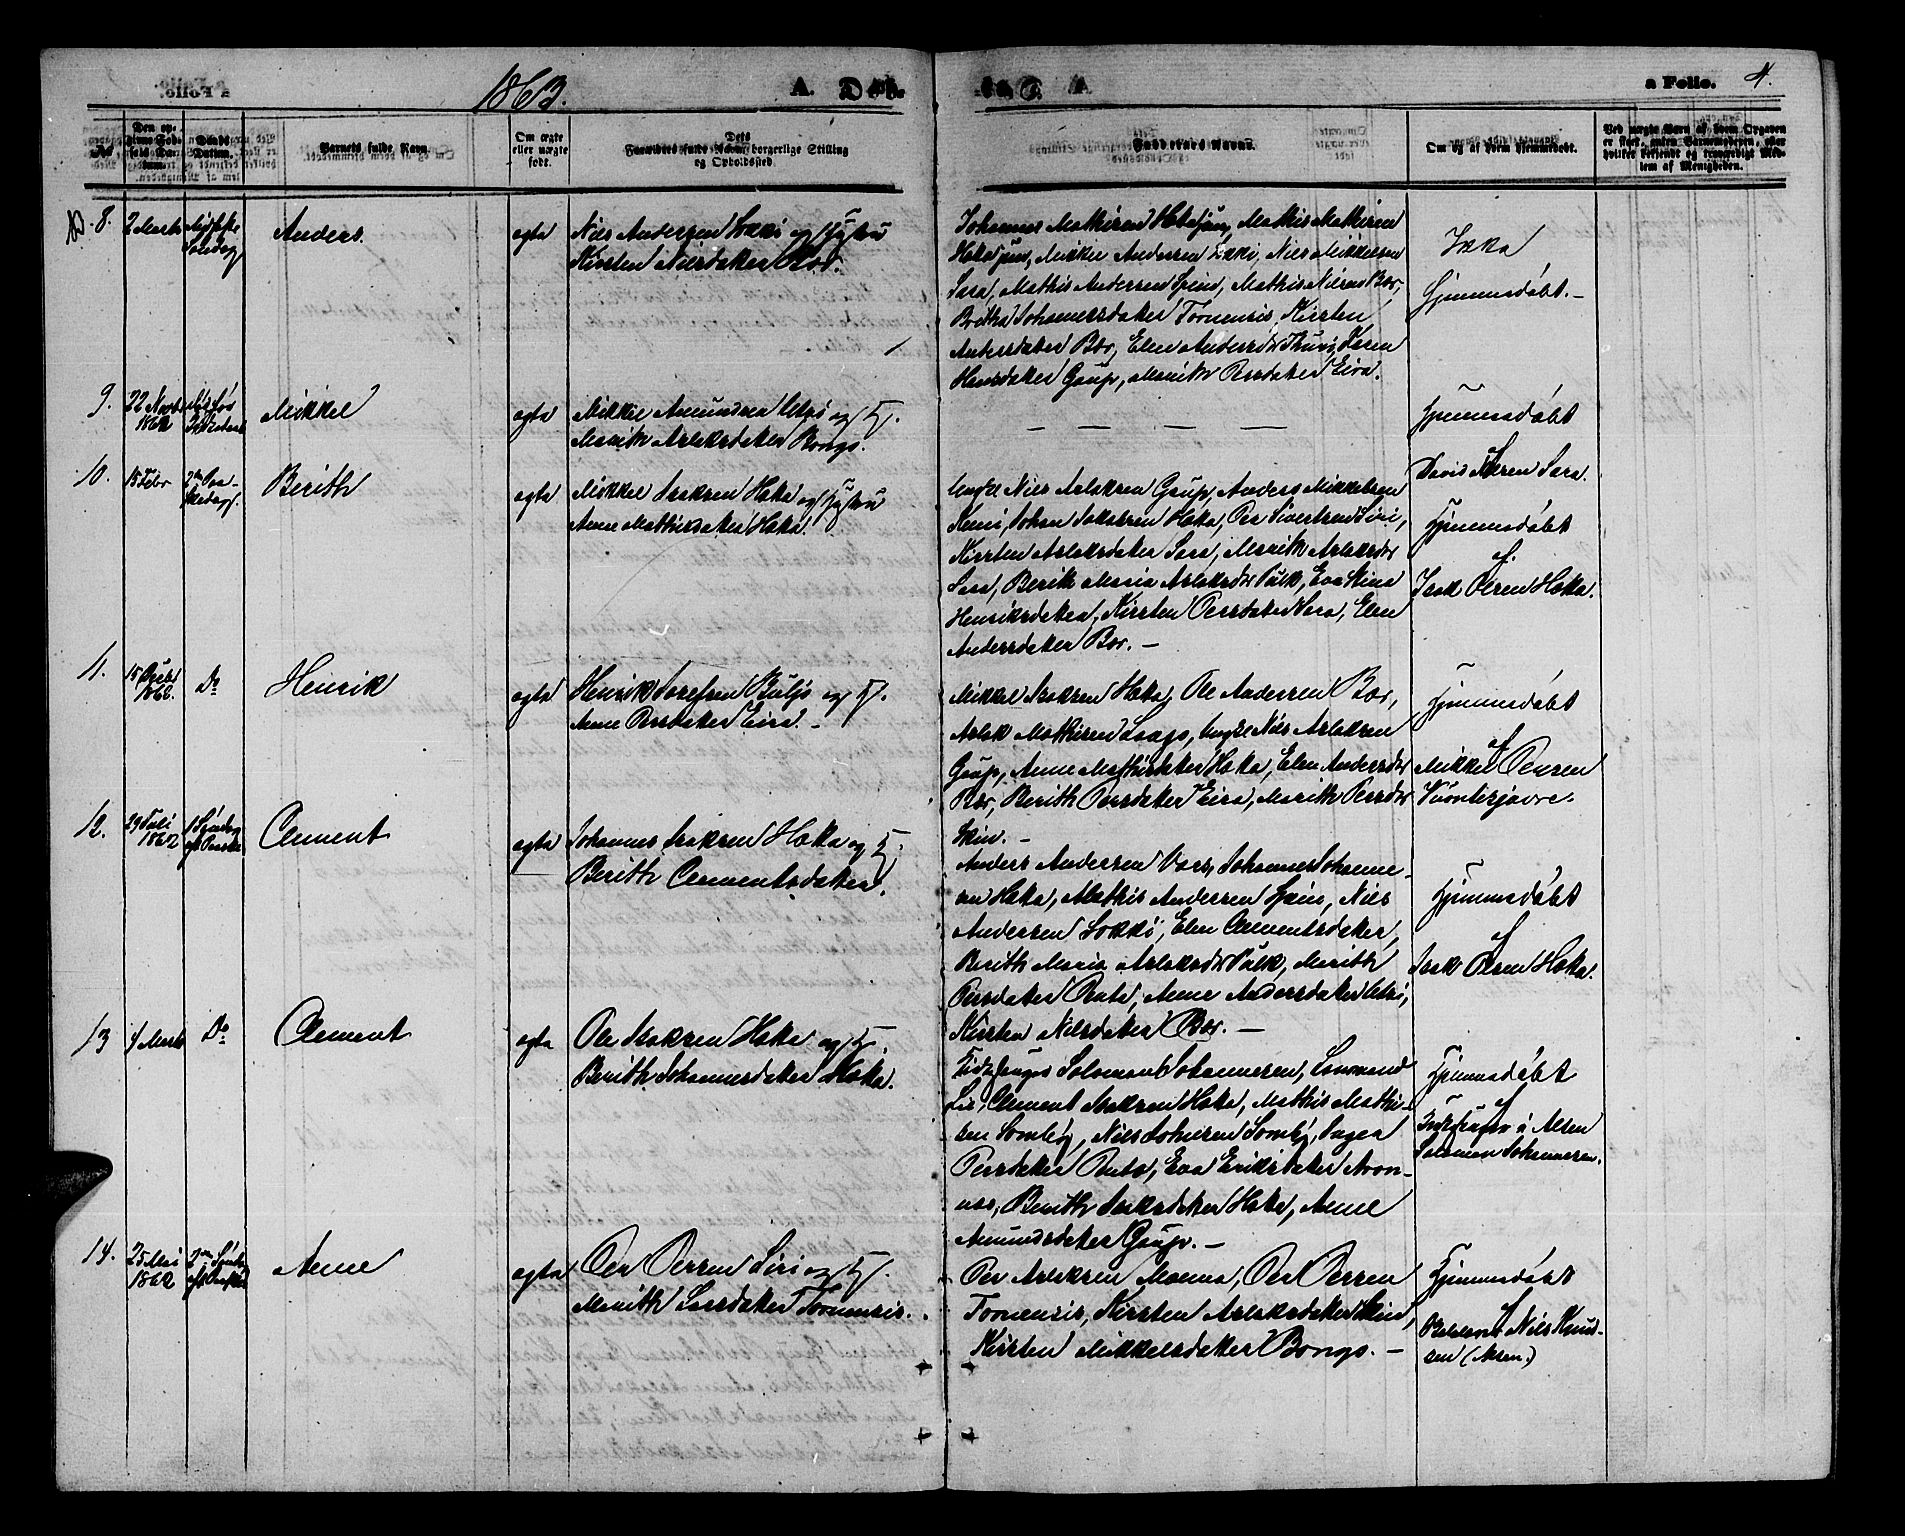 1863.
A. Døbte.
a Folio. 4.
No
Den opgivne Fødsels Datum.
Daabs Datum.
Barnets fulde Navn.
Om ægte eller uægte født.
Dets Forældres fulde Navn, borgerlige Stilling og Opholdssted.
Faddernes Navne.
Om og af hvem hjemmedøbt.
Ved uægte Barn af hvem Opgaven er skeet, uden Barnemoderen, eller hvilket bekjendt og troværdigt Medlem af Menigheden.
8. 2 Marts
Anders.
ægte
Nils Andersen og Hustru
Kirsten Nilsdatter Bær.
Johannes Mathisen Hætajun, Mathis Mathisen
Hætajun, Mikkel Andersen, Nils Mikkelsen
Sara, Mathis Andersen Spein, Mathis Nilsen Bær,
Britha Johannesdatter Tornensis, Kirsten
Andersdatter Bær, Elen Andersdr Thuri, Karen
Hansdatter Gaup, Marith Persdatter Eira.
Ikke
Hjemmedøbt.-
9. 22 Novbr
1862
Mikkel
ægte
Mikkel Amundsen Utsi og H.
Marith Aslaksdatter Bongo.
— — — —
Hjemmedøbt
10. 15 Febr 2den Paaskedag.
Berith
ægte
Mikkel Isaksen Hætta og Hustru
Anne Mathisdatter Hætta.
Ungkl Nils Aslaksen Gaup, Anders Mikkelsen
Kemi, Johan Isaksen Hætta, Per Sivertsen Siri,
Kirsten Aslaksdatter Sara, Marith Aslaksdr
Sara, Berith Maria Aslaksdr Pulk, Eva Stina
Henriksdatter, Kirsten Persdatter Sara, Elen
Andersdatter Bær. —
David Kieren Sara.
Hjemmedøbt
af
Isak Olsen Hætta.
11. 15
1862. Do
Henrik
ægte
Henrik Josefsen Buljo og H.
Anne Persdatter Eira. -
Mikkel Isaksen Hætta, Ole Andersen Bær,
Aslak Mathisen Laago, Ungkl Nils Aslaksen
Gaup, Anne Mathisdatter Hætta, Elen Andersdr
Bær, Berith Persdatter Eira, Marith Persdr
Skin. -
Hjemmedøbt
af
Mikkel Pentsen
Vuontisjavre.
12. 29 Juli
1862 1 Søndag
eft Paaske
Clement
ægte
Johannes Isaksen Hætta og H.
Berith Clementsdatter.
Anders Andersen Vars, Johannes Johannesen
Hætta, Mathis Andersen Spein, Nils
Andersen Lokki, Elen Clementsdatter,
Berith Maria Aslaksdr Pulk, Marith
Persdatter Penta, Anne Andersdatter Utsi,
Kirsten Nilsdatter Bær. —
Hjemmedøbt
af
Isak Olsen Hætta.
13 4 Marts Do
Clement
ægte
Ole Isaksen Hætta og H.
Berith Johannesdatter Hætta.
Salomon Johannesen,
Clement Isaksen Hætta, Mathis Mathisen
Somby, Nils Johnsen Somby, Inga
Persdatter Penta, Eva Eriksdatter
Berith Isaksdatter Hætta, Anne
Amundsdatter Gaup. —
Hjemmedøbt
af
i Alten
Salomon Johannesen.
14. 25 Mai
1862 2den Sønd.
eft Paaske
Anne
ægte
Per Persen Siri og H.
Marith Larsdatter Tornensis.
Per Aslaksen Mænna, Per Persen
Tornensis, Kirsten Aslaksdatter Skin,
Kirsten Mikkelsdatter Bongo. —
Hjemmedøbt
af
Nils Knudsen
(Alten.)